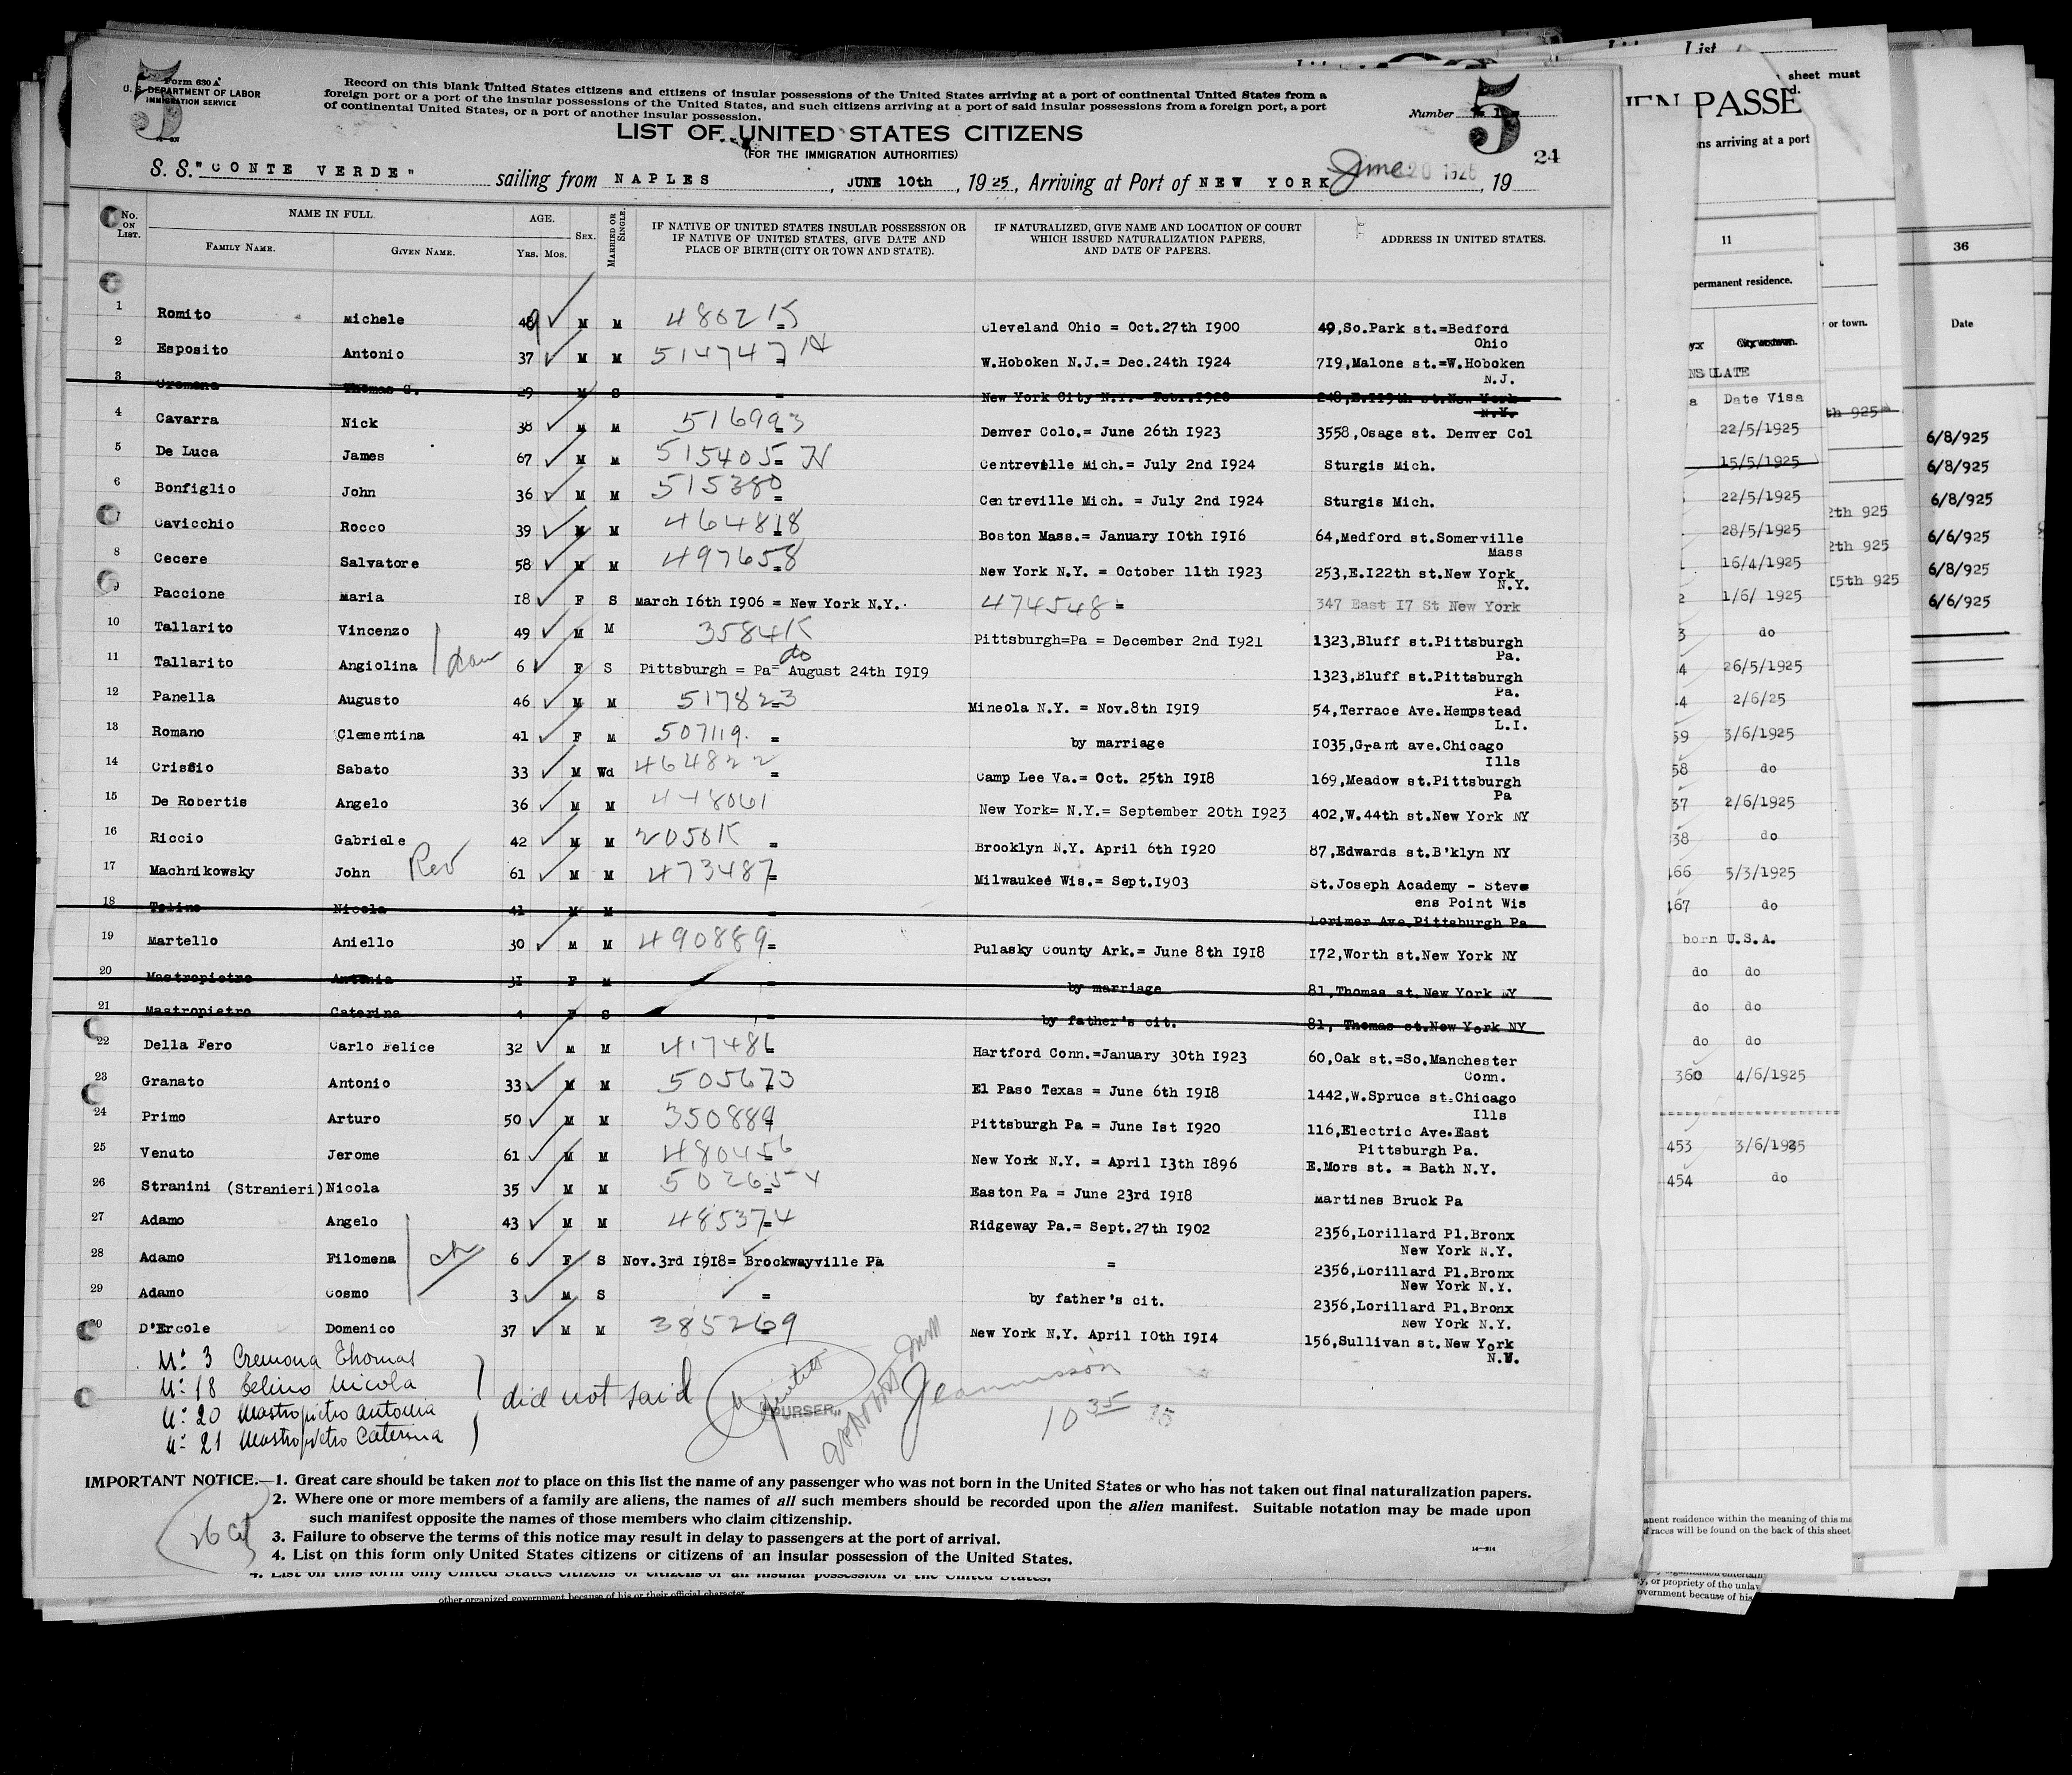 Form 630 A
U. S. DEPARTMENT OF LABOR
IMMIGRATION SERVICE
5
Record on this blank United States citizens and citizens of insular possessions of the United States arriving at a port of continental United States from a
foreign port or a port of the insular possessions of the United States, and such citizens arriving at a port of said insular possessions from a foreign port, a port
of continental United States, or a port of another insular possession.
Number 5
24
LIST OF UNITED STATES CITIZENS
(FOR THE IMMIGRATION AUTHORITIES)
S. S. "CONTE VERDE" sailing from NAPLES, JUNE 10th, 1925, Arriving at Port of NEW YORK June 20 1925, 19
No. ON LIST. NAME IN FULL. FAMILY NAME. GIVEN NAME. AGE. YRS. MOS. SEX. MARRIED OR SINGLE. IF NATIVE OF UNITED STATES INSULAR POSSESSION OR IF NATIVE OF UNITED STATES, GIVE DATE AND PLACE OF BIRTH (CITY OR TOWN AND STATE). IF NATURALIZED, GIVE NAME AND LOCATION OF COURT WHICH ISSUED NATURALIZATION PAPERS, AND DATE OF PAPERS. ADDRESS IN UNITED STATES.
1 Romito Michele M M 48021K Cleveland Ohio = Oct.27th 1900 49,So.Park st.=Bedford
Ohio
2 Esposito Antonio 37 M M 514747 = W.Hoboken N.J.= Dec.24th 1924 719,Malone st.=W.Hoboken
N.J.
3 Cremona Thomas S. 29 M S = New York City N.Y.= Febr.1920 248,E.119th st.New York
N.Y.
4 Cavarra Nick 38 M M 516993 Denver Colo.= June 26th 1923 3558,Osage st. Denver Col
5 De Luca James 67 M M 515405 N Centreville Mich.= July 2nd 1924 Sturgis Mich.
6 Bonfiglio John 36 M M 515380 = Centreville Mich. = July 2nd 1924 Sturgis Mich.
7 Cavicchio Rocco 39 M M 464818 Boston Mass.= January 10th 1916 64,Medford st.Somerville
Mass
8 Cecere Salvatore 58 M M 497658 New York N.Y. = October 11th 1923 253,E.122th st.New York
N.Y.
9 Paccione Maria 18 F S March 16th 1906 = New York N.Y. 474548 = 347 East 17 St New York
10 Tallarito Vincenzo 49 M M 3584K Pittsburgh=Pa = December 2nd 1921 1323,Bluff st.Pittsburgh
Pa.
do
11 Tallarito Angiolina 6 F S Pittsburgh = Pa= August 24th 1919 1323,Bluff st.Pittsburgh
Pa.
12 Panella Augusto 46 M M 517823 Mineola N.Y. = Nov.8th 1919 54,Terrace Ave.Hempstead
L.I.
13 Romano Clementina 41 F M 507119 = by marriage 1035,Grant ave.Chicago
Ills
14 Crissio Sabato 33 M Wd 464822 = Camp Lee Va.= Oct. 25th 1918 169,Meadow st.Pittsburgh
Pa
15 De Robertis Angelo 36 M M 448061 New York= N.Y.= September 20th 1923 402,W.44th st.New York NY
16 Riccio Gabriele 42 M M 2050K = Brooklyn N.Y. April 6th 1920 87,Edwards st.B'klyn NY
17 Machnikowsky John Rev 61 M M 473487 Milwaukee Wis.= Sept.1903 St.Joseph Academy - Steve
ens Point Wis
18 Telino Nicola 41 M M = Lorimer Ave.Pittsburgh Pa
19 Martello Aniello 30 M M 490889= Pulasky County Ark.= June 8th 1918 172,Worth st.New York NY
20 Mastropietro Antonia 31 F M = by marriage 81,Thomas st.New York NY
21 Mastropietro Caterina 4 F S = by father's cit. 81, Thomas st.New York NY
22 Della Fero Carlo Felice 32 M M 417486 Hartford Conn.=January 30th 1923 60,Oak st.=So.Manchester
Conn.
23 Granato Antonio 33 M M 505673 El Paso Texas = June 6th 1918 1442,W.Spruce st.Chicago
Ills
24 Primo Arturo 50 M M 350889 Pittsburgh Pa = June 1st 1920 116,Electric Ave.East
Pittsburgh Pa.
25 Venuto Jerome 61 M M 480456 New York N.Y. = April 13th 1896 E.Mors st. = Bath N.Y.
26 Stranini (Stranieri) Nicola 35 M M 502654 Easton Pa = June 23rd 1918 Martines Bruck Pa
27 Adamo Angelo 43 M M 485374 Ridgeway Pa.= Sept.27th 1902 2356,Lorillard Pl.Bronx
New York N.Y.
28 Adamo Filomena 6 F S Nov.3rd 1918= Brockwayville Pa = 2356,Lorillard Pl.Bronx
New York N.Y.
29 Adamo Cosmo 3 M S = by father's cit. 2356,Lorillard Pl.Bronx
New York N.Y.
30 D'Ercole Domenico 37 M M 385269 New York N.Y. April 10th 1914 156,Sullivan st.New York
N.Y.
N: 3 Cremona Thomas
N: 18 Telino Nicola
N: 20 Mastropietro Antonia
N: 21 Mastropietro Caterina
did not said
"PURSER"
10 35 15
IMPORTANT NOTICE.—1. Great care should be taken not to place on this list the name of any passenger who was not born in the United States or who has not taken out final naturalization papers.
2. Where one or more members of a family are aliens, the names of all such members should be recorded upon the alien manifest. Suitable notation may be made upon
such manifest opposite the names of those members who claim citizenship.
3. Failure to observe the terms of this notice may result in delay to passengers at the port of arrival.
4. List on this form only United States citizens or citizens of an insular possession of the United States.
26 Cit
14—214
4. List on this form only United States citizens or citizens of an insular possession of the United States.
other organized government because of his or their official character
List
sheet must
PASSE
ns arriving at a port
11
permanent residence.
or town.
36
Date
ULATE
Date Visa
22/5/1925
15/5/1925
22/5/1925
28/5/1925
16/4/1925
1/6/ 1925
do
26/5/1925
2/6/25
59 3/6/1925
58 do
37 2/6/1925
38 do
66 5/3/1925
467 do
born U.S.A.
do do
do do
do do
360 4/6/1925
453 3/6/1925
454 do
th 925
2th 925
2th 925
15th 925
6/8/925
6/8/925
6/8/925
6/6/925
6/8/925
6/6/925
anent residence within the meaning of this
f races will be found on the back of this sheet
y, or propriety of the
overnment because of his